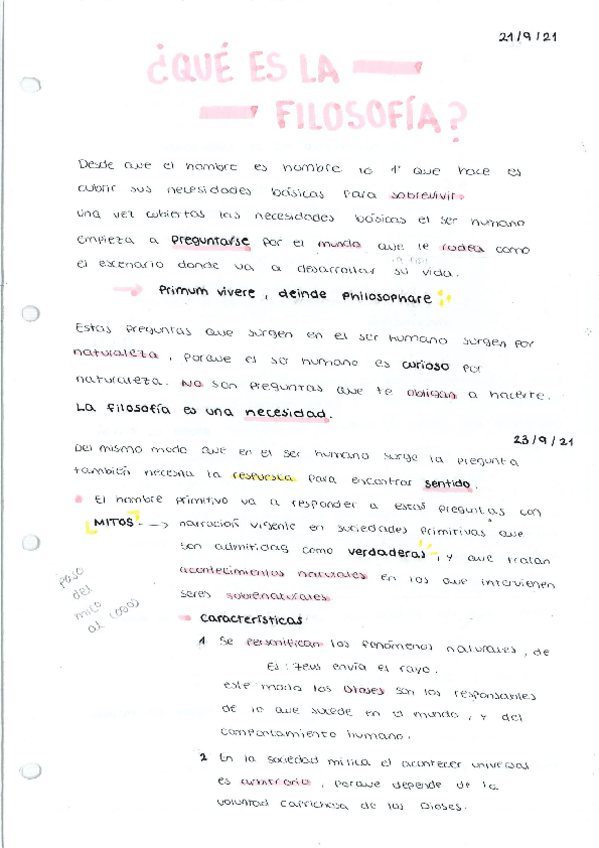 21/9/21
¿QUÉ ES LA
FILOSOFÍA?
Desde que el hombre es hombre lo 1º que hace es
cubrir sus necesidades básicas para sobrevivir.
Una vez cubiertas las necesidades básicas el ser humano
empieza a preguntarse por el mundo que le rodea como
el escenario donde va a desarrollar su vida.
Primum vivere, deinde philosophare
Estas preguntas que surgen en el ser humano surgen por
naturaleza, porque el ser humano es curioso por
naturaleza. No son preguntas que te obligan a hacerte.
La filosofía es una necesidad.
23/9/21
Del mismo modo que en el ser humano surge la pregunta
también necesita la respuesta para encontrar sentido.
El hombre primitivo va a responder a estas preguntas con
MITOS → narración vigente en sociedades primitivas que
son admitidas como verdaderas, y que tratan
acontecimientos naturales en los que intervienen
seres sobrenaturales
paso
del
mito
al logos
Características
1 Se personifican los fenómenos naturales, de
Ej: Zeus envía el rayo.
este modo los Dioses son los responsables
de lo que sucede en el mundo, y del
comportamiento humano.
2 En la sociedad mítica el acontecer universal
es arbitrario, porque depende de la
voluntad caprichosa de los Dioses.